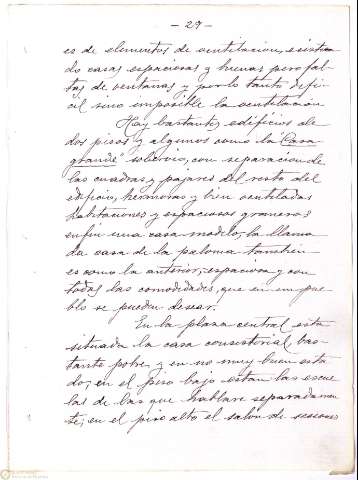 - 29 -
es de elementos de ventilacion, existien
do casas espaciosas y buenas pero fal
tas de ventanas y por lo tanto difi
cil sino imposible la ventilación
Hay bastantes edificios de
dos pisos y algunos como la "Casa
grande" soberbio, con separacion de
las cuadras y pajares del resto del
edificio, hermosas y bien ventiladas
habitaciones y espaciosos graneros
en fin una casa modelo, la llama
da casa de la paloma tambien
es como la anterior, espaciosa y con
todas las comodidades, que en un pue
blo se pueden desear.
En la plaza central esta
situada la casa consistorial bas-
tante pobre y en no muy buen esta
do, en el piso bajo estan las escue
las de las que hablare separadamen
te, en el piso alto el salon de sesiones